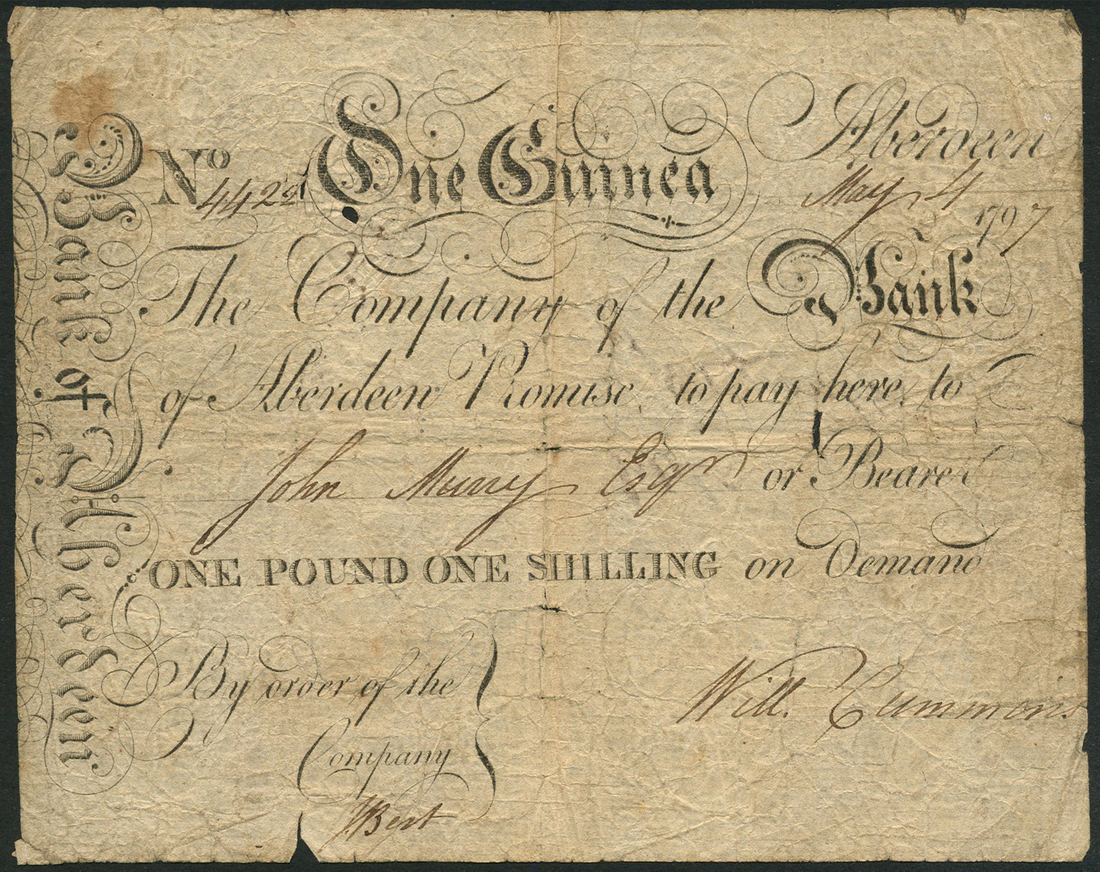 Bank of Aberdeen
No 442 One Guinea Aberdeen
May 4 1797
The Company of the Bank
of Aberdeen Promise to pay here to
John Murry Esqr or Bearer
ONE POUND ONE SHILLING on Demand
By order of the
Company
Will. Cummons
JBest